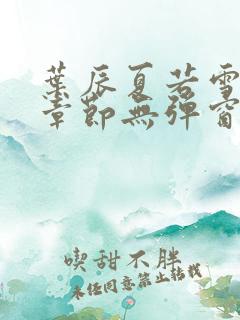 葉辰夏若雪
章節無彈窗
喫甜不胖
未經同意禁止轉載